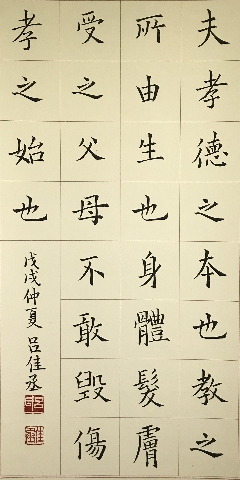 夫孝德之本也教之
所由生也身體髮膚
受之父母不敢毀傷
孝之始也
戊戌仲夏呂佳丞